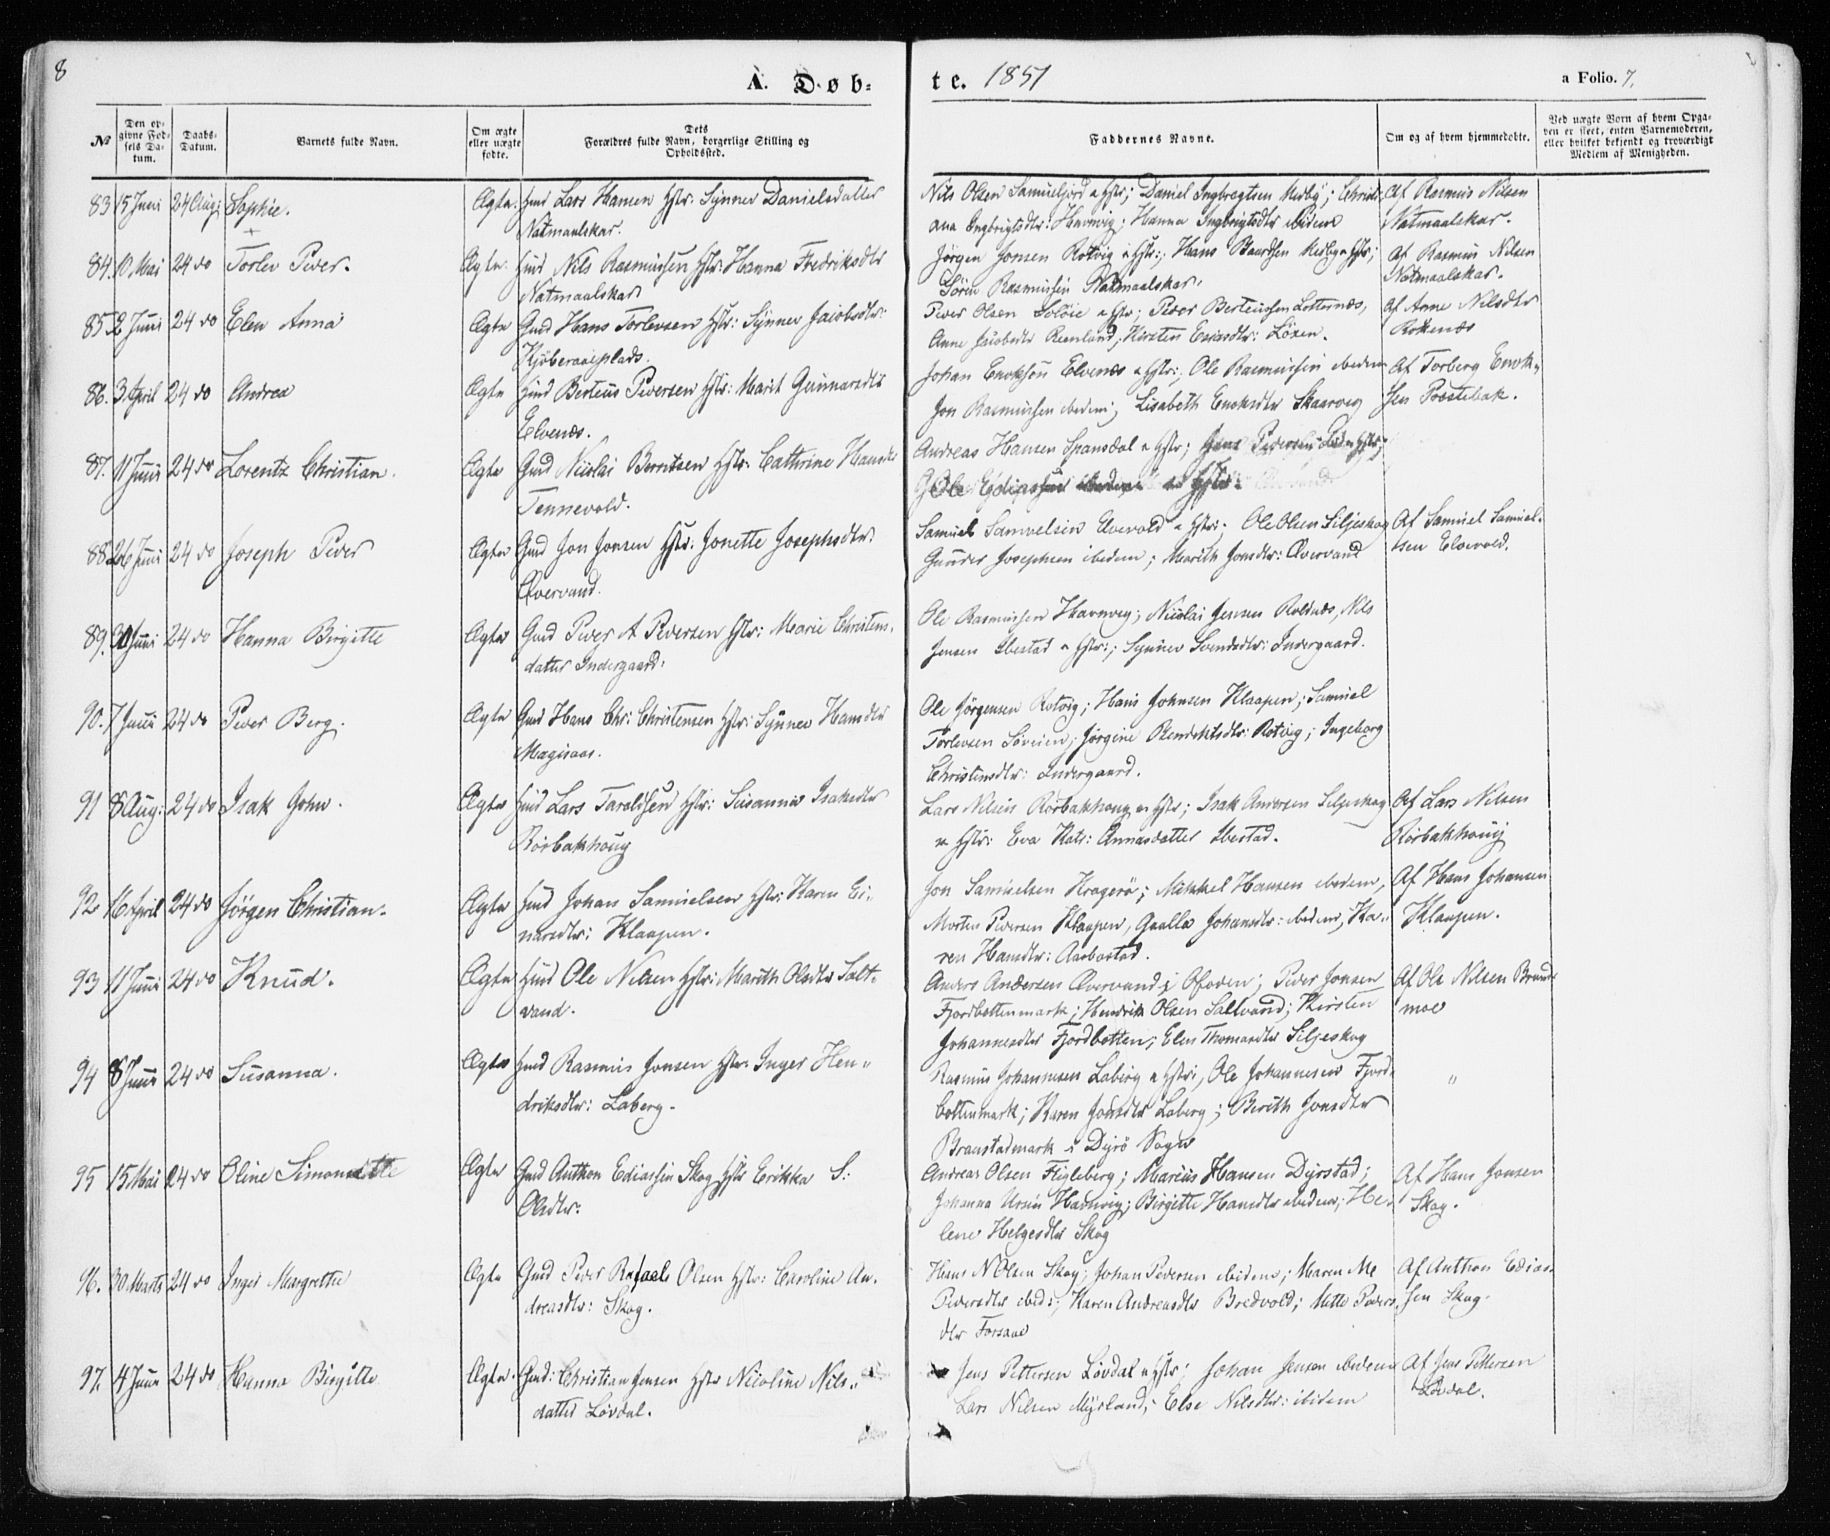 8
A. Døb-
te. 1851
a Folio. 7.
№
Den opgivne Fødsels Datum.
Daabs-Datum.
Barnets fulde Navn.
Om ægte eller uægte fødte.
Dets Forældres fulde Navn, borgerlige Stilling og Opholdssted.
Faddernes Navne.
Om og af hvem hjemmedøbte.
Ved uægte Børn af hvem Opgaven er skeet, enten Barnemoderen, eller hvilket bekjendt og troværdigt Medlem af Menigheden.
83 15 Juni 24 Aug: Sophie. Ægte. Huus Lars Hansen Hstr: Synnev Danielsdatter
Natmaalskar.
Nils Olsen Samueljord & Hstr; Daniel Ingbregtsen Medby; Christi-
ana Ingbrigtsdtr: Havnvig; Hanna Ingbrigtsdtr ibidem
Af Rasmus Nilsen
Natmaalskar.
84. 10 Mai 24 do Torlev Peder. Ægte. Huus Nils Rasmussen Hstr: Hanna Fredriksdtr
Natmaalskar
Jørgen Jonsen Rotvig & Hstr:, Hans Baardsen Medby & Hstr;
Søren Rasmussen Natmaalskar.
Af Rasmus Nilsen
Natmaalskar.
85. 2 Juni 24 do Elen Anna Ægte Gmd Hans Torlevsen Hstr: Synnev Jacobsdtr:
Kjøberaaeplads.
Peder Olsen Soløie & Hstr; Peder Berteussen Lotternæs,
Anne Jacobsdtr Reenland, Kirsten Esiasdtr: Løxen.
Af Anne Nilsdtr
Rokenæs
86. 3 April 24 do Andrea Ægte Huus Berteus Pedersen Hstr: Marit Gunnarsdtr
Elvenæs.
Johan Enoksen Elvenæs & Hstr:, Ole Rasmussen ibidem
Jon Rasmussen ibidem; Lisabeth Enoksdtr Skaarvig
Af Torberg Enok-
sen Postebak.
87. 11 Juni 24 do Lorentz Christian. Ægte Gmd Nicolai Berntsen Hstr: Cathrine Hansdtr
Tennevold.
Andreas Hansen Spansdal & Hstr; Jens Pedersen & Hstr;
Ole Ediassen & Hstr:
88. 26 Juni 24 do Joseph Peder Ægte Gmd Jon Jonsen Hstr: Jonette Josephsdtr:
Øvervand.
Samuel Samuelsen Elvevold & Hstr; Ole Olsen Siljeskog
Gunder Josephsen ibidem; Marith Jonsdtr: Øvervand
Af Samuel Samuel-
sen Elvevold.
89. 30 Juni 24 do Hanna Birgitte Ægte Gmd Peder A Pedersen Hstr: Marie Christens-
datter Indergaard.
Ole Rasmussen Havnvig; Nicolai Jensen Roldnæs, Nils
Jensen Ibestad & Hstr:; Synnev Svendsdtr: Indergaard.
90. 7 Juni 24 do Peder Berg. Ægte Gmd Hans Chr: Christensen Hstr: Synnev Hansdtr
Magisaas.
Ole Jørgensen Rotvig; Hans Johnsen Klaapen; Samuel
Torlevsen Søveien; Jørgine Bendiktsdtr: Rotvig; Ingeborg
Christensdtr: Indergaard.
91 8 Aug: 24 do Isak John. Ægte Huus Lars Taraldsen Hstr: Susanna Isaksdtr
Rørbakhoug
Lars Nilsen Rørbakhoug & Hstr; Isak Andersen Siljeskog
& Hstr: Eva Kat: Annasdatter Ibestad.
Af Lars Nilsen
Rørbakhoug
92 16 April 24 do Jørgen Christian. Ægte Huus Johan Samuelsen Hstr: Karen Ei-
narsdtr: Klaapen.
Jon Samuelsen Kragerø; Mikkel Hansen ibidem,
Morten Pedersen Klaapen, Graalla Johansdtr: ibidem; Ka-
ren Hansdtr: Aarbostad.
Af Hans Johansen
Klaapen.
93 11 Juni 24 do Knud. Ægte Huus Ole Nilsen Hstr: Marith Olsdtr Salt-
vand.
Anders Andersen Øvervand i Ofoden; Peder Jonsen
Fjordbottenmark; Hendrik Olsen Saltvand; Kirsten
Johannesdtr Fjordbotten; Elen Thomasdtr Siljeskog
Af Ole Nilsen Brand-
moe
94 8 Juni 24 do Susanna. Ægte Huus Rasmus Jonsen Hstr: Inger Hen-
driksdtr: Laberg.
Rasmus Johannesen Laberg & Hstr:, Ole Johannesen Fjord-
bottenmark; Karen Jonsdtr Laberg; Berith Jonsdtr
Branstadmark i Dyrø Sogn
"
95 15 Mai 24 do Oline Simonette Ægte Gmd Anthon Ediassen Skog Hstr Erikka S:
Olsdtr:
Andreas Olsen Flygleberg; Marius Hansen Dyrstad;
Johanna Ursin Havnvig; Birgitte Hansdtr ibidem; He-
lene Helgesdtr Skog
Af Hans Jonsen
Skog.
96. 30 Marts 24 do Inger Margrethe Ægte Gmd Peder Rafael Olsen Hstr: Caroline An-
dreasdtr: Skog.
Hans N Olsen Skog; Johan Pedersen ibidem; Maren M.
Pedersdtr ibid:; Karen Andreasdtr Bredvold; Mette Peders-
dtr Forsaae
Af Anthon Edias-
sen Skog.
97. 4 Juni 24 do Hanna Birgitte Ægte. Gmd: Christian Jensen Hstr Nicoline Nils-
datter Løvdal.
Jens Pettersen Løvdal & Hstr; Johan Jensen ibidem
Lars Nilsen Myrland; Else Nilsdtr: ibidem
Af Jens Pettersen
Løvdal.